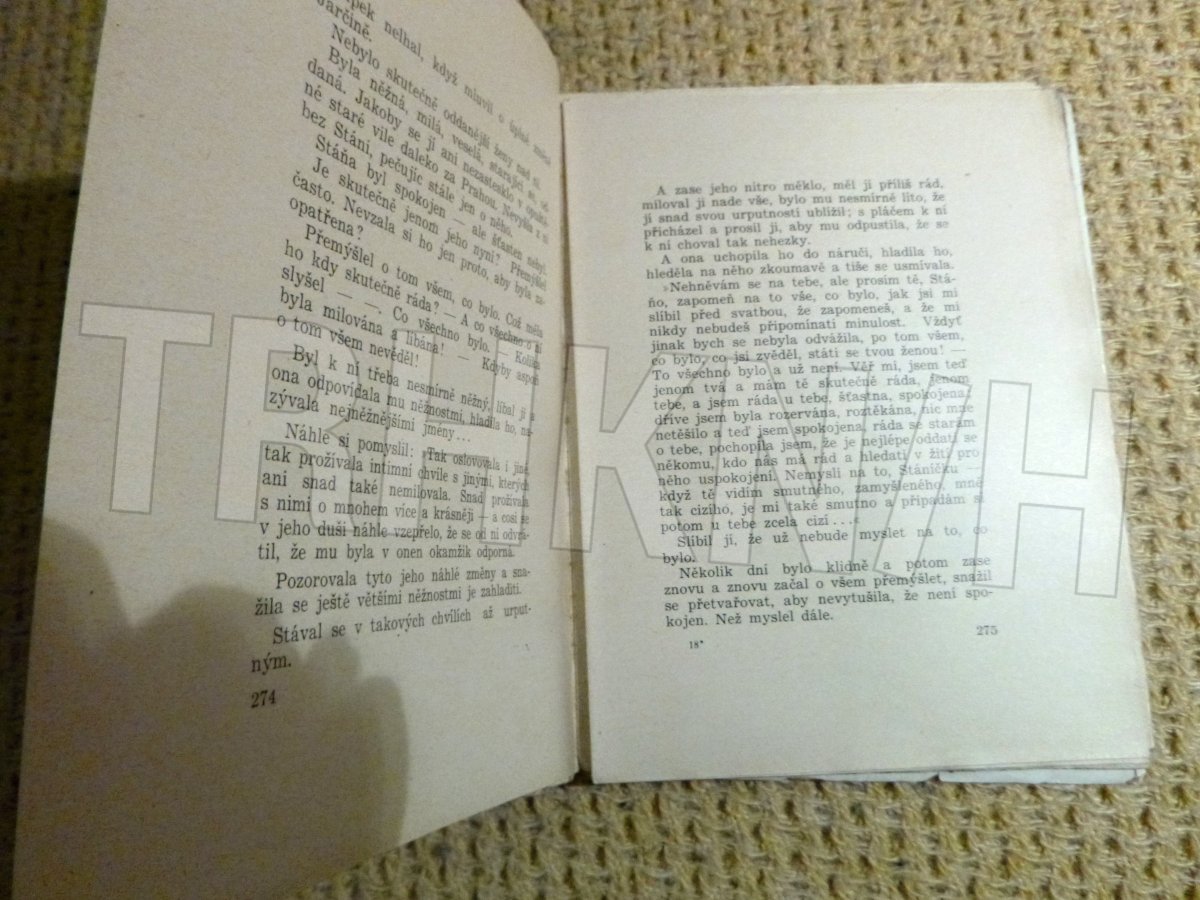 pek nelhal, když mluvil o úplné změně
Jarčině.
Nebylo skutečně oddanější ženy nad ni.
Byla něžná, milá, veselá, starající se, od-
daná. Jakoby se jí ani nezastesklo v opuště-
né staré vile daleko za Prahou. Nevyšla z ní
bez Stáni, pečujíc stále jen o něho.
Stáňa byl spokojen — ale šťasten nebyl.
Je skutečně jenom jeho nyní? Přemýšlel
často. Nevzala si ho jen proto, aby byla za-
opatřena?
Přemýšlel o tom všem, co bylo. Což měla
ho kdy skutečně ráda? — A co všechno o ní
slyšel — — Co všechno bylo. — Kolika
byla milována a líbána! — Kdyby aspoň
o tom všem nevěděl!
Byl k ní třeba nesmírně něžný, líbal ji a
ona odpovídala mu něžnostmi, hladila ho, na-
zývala nejněžnějšími jmény...
Náhle si pomyslil: »Tak oslovovala i jiné,
tak prožívala intimní chvíle s jinými, kterých
ani snad také nemilovala. Snad prožívala
s nimi o mnohem více a krásněji — a cosi se
v jeho duši náhle vzepřelo, že se od ní odvrá-
til, že mu byla v onen okamžik odporná.
Pozorovala tyto jeho náhlé změny a sna-
žila se ještě většími něžnostmi je zahladiti.
Stával se v takových chvílích až urput-
ným.
274
A zase jeho nitro měklo, měl ji příliš rád,
miloval ji nade vše, bylo mu nesmírně líto, že
jí snad svou urputností ublížil; s pláčem k ní
přicházel a prosil ji, aby mu odpustila, že se
k ní choval tak nehezky.
A ona uchopila ho do náručí, hladila ho,
hleděla na něho zkoumavě a tiše se usmívala.
»Nehněvám se na tebe, ale prosím tě, Stá-
ňo, zapomeň na to vše, co bylo, jak jsi mi
slíbil před svatbou, že zapomeneš, a že mi
nikdy nebudeš připomínati minulost. Vždyť
jinak bych se nebyla odvážila, po tom všem,
co bylo, co jsi zvěděl, státi se tvou ženou! —
To všechno bylo a už není. Věř mi, jsem teď
jenom tvá a mám tě skutečně ráda, jenom
tebe, a jsem ráda u tebe, šťastna, spokojena,
dříve jsem byla rozervána, roztěkána, nic mne
netěšilo a teď jsem spokojena, ráda se starám
o tebe, pochopila jsem, že je nejlépe oddati se
někomu, kdo nás má rád a hledati v žití pro
něho uspokojení. Nemysli na to, Stáníčku —
když tě vidím smutného, zamyšleného, mně
tak cizího, je mi také smutno a připadám si
potom u tebe zcela cizí...«
Slíbil jí, že už nebude myslet na to, co
bylo.
Několik dní bylo klidně a potom zase
znovu a znovu začal o všem přemýšlet, snažil
se přetvařovat, aby nevytušila, že není spo-
kojen. Než myslel dále.
18*
275